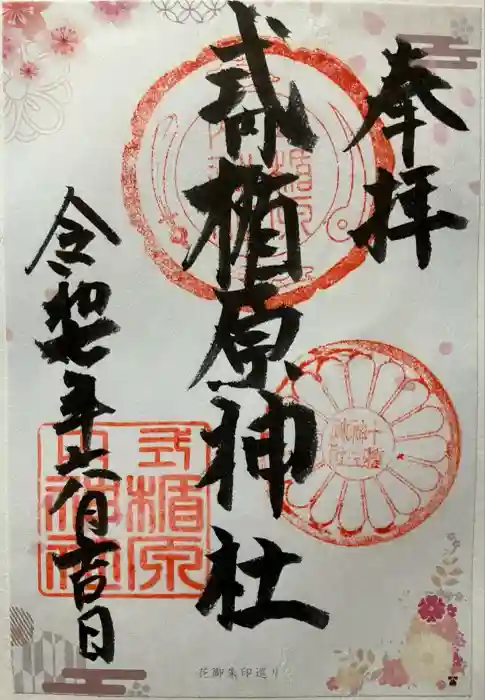 奉拝
式内楯原神社
令和七年六月吉日
式楯原
内神社
花御朱印巡り